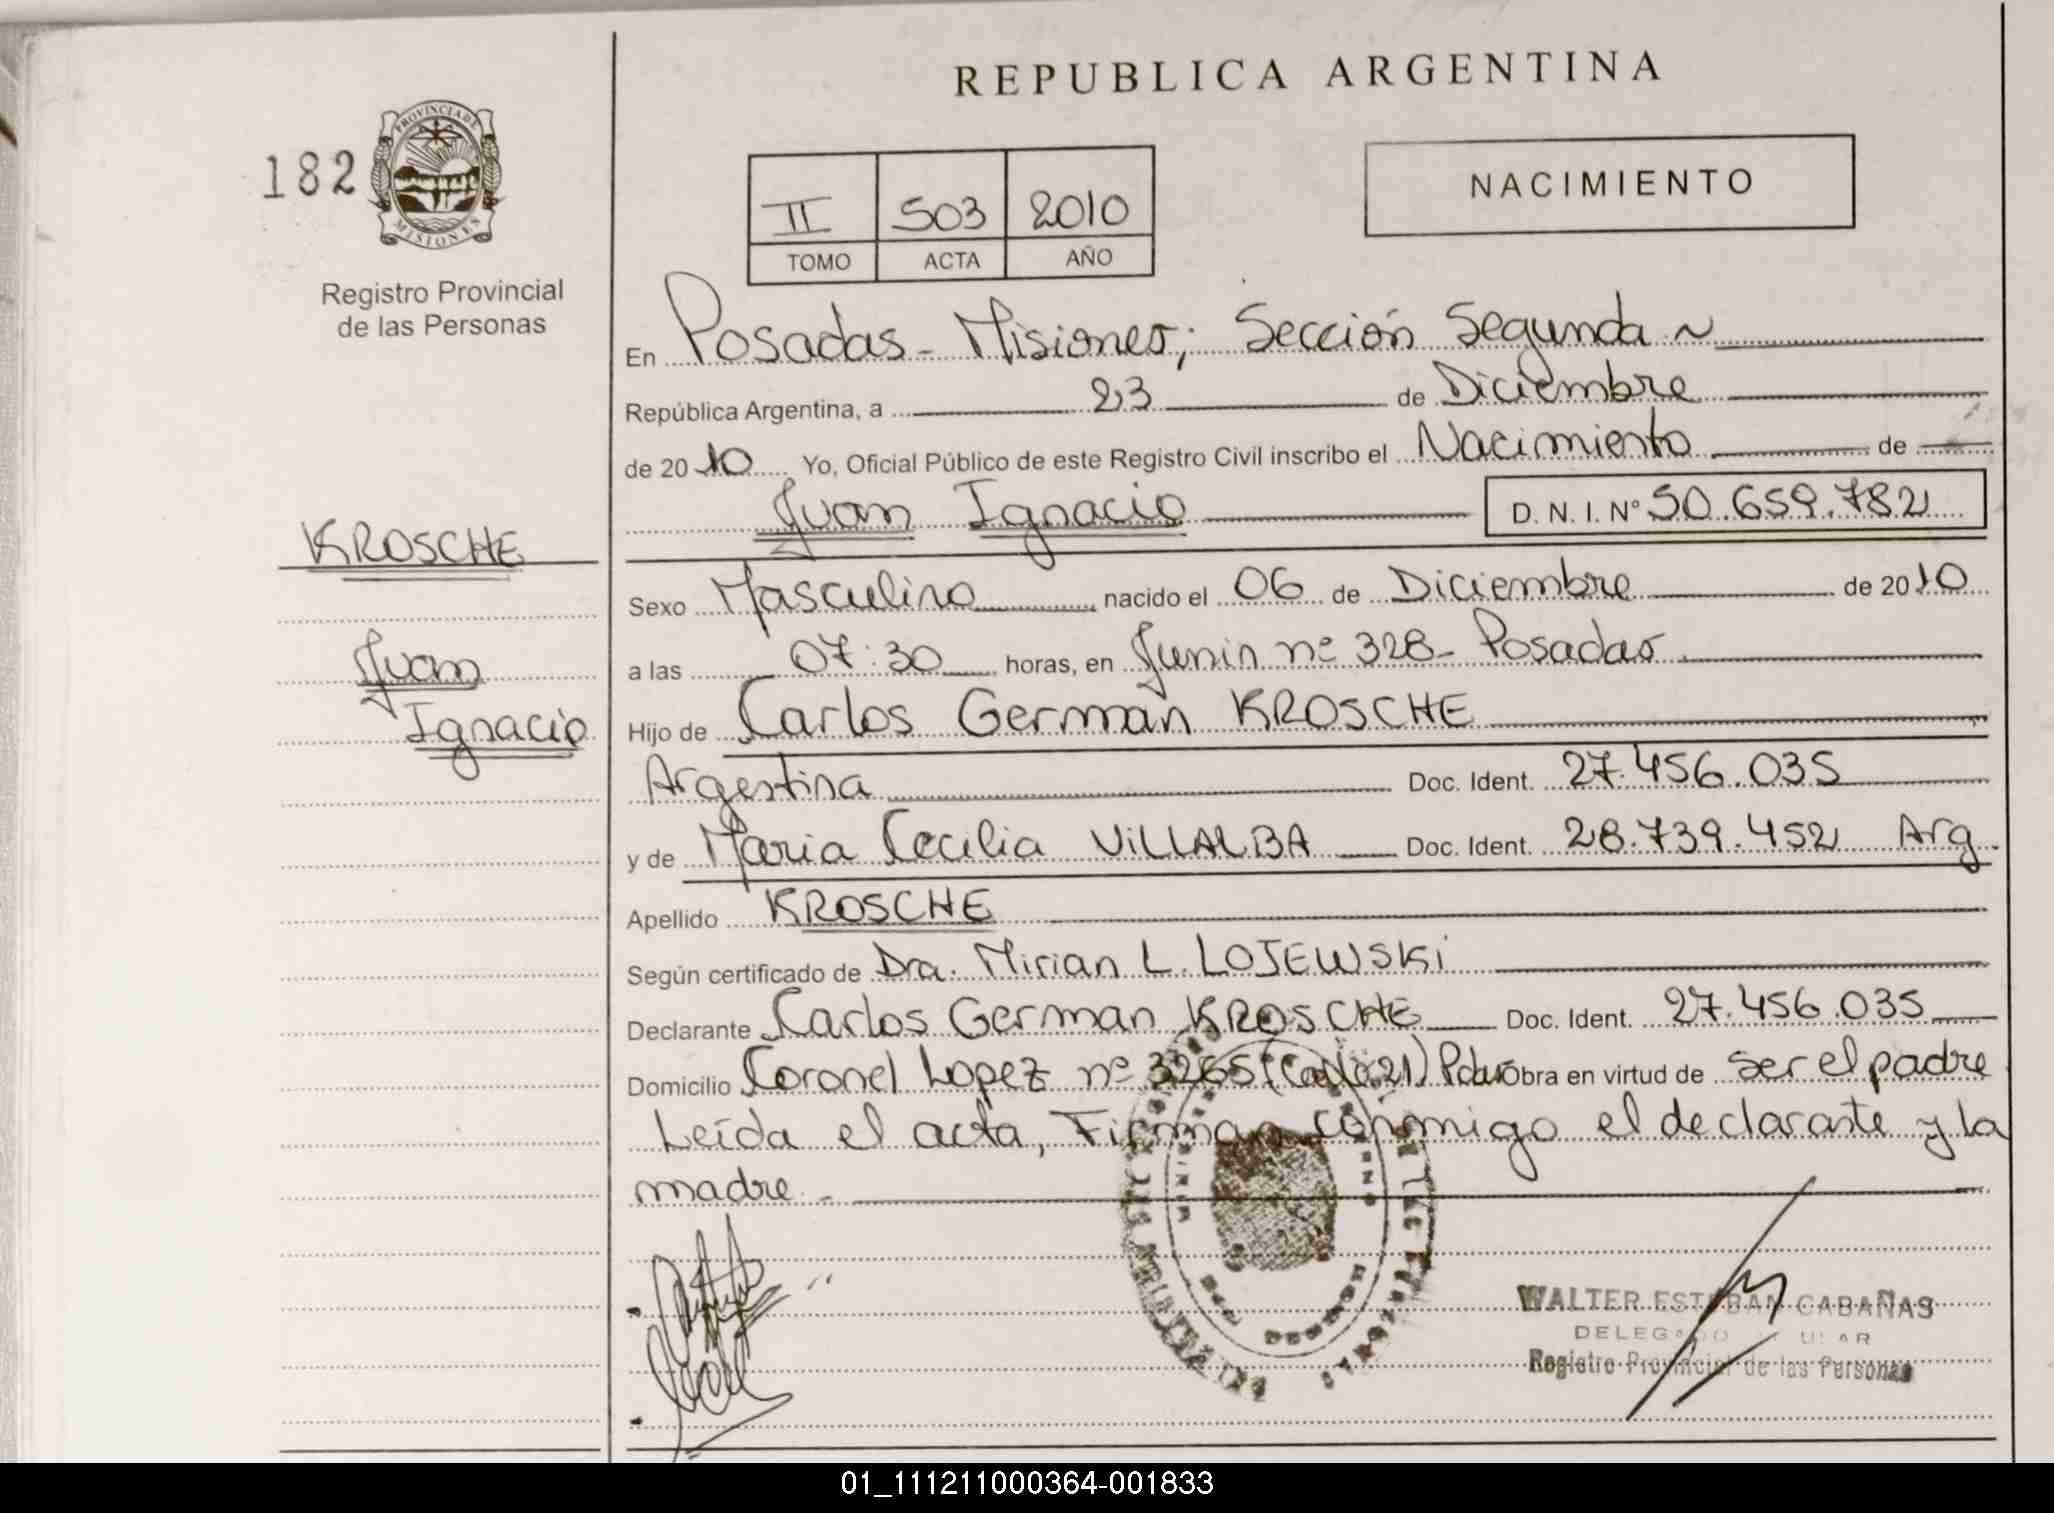 REPUBLICA ARGENTINA
182
PROVINCIA DE
MISIONES
Registro Provincial
de las Personas
II 503 2010
TOMO ACTA AÑO
NACIMIENTO
En Posadas - Misiones; Sección Segunda ~
República Argentina, a 23 de Diciembre
de 2010 Yo, Oficial Público de este Registro Civil inscribo el Nacimiento de
Juan Ignacio D. N. I. Nº 50.659.782
KROSCHE
Juan
Ignacio
Sexo Masculino nacido el 06 de Diciembre de 2010
a las 07:30 horas, en Junin nº 328- Posadas
Hijo de Carlos German KROSCHE
Argentina Doc. Ident. 27.456.035
y de Maria Cecilia VILLALBA Doc. Ident. 28.739.452 Arg.
Apellido KROSCHE
Según certificado de Dra. Mirian L. LOJEWSKI
Declarante Carlos German KROSCHE Doc. Ident. 27.456.035
Domicilio Coronel Lopez nº 3265 Obra en virtud de ser el padre
Leída el acta, Firman conmigo el declarante y la
madre -
WALTER ESTEBAN CABAÑAS
DELEGADO
Registro Provincial de las Personas
01_111211000364-001833